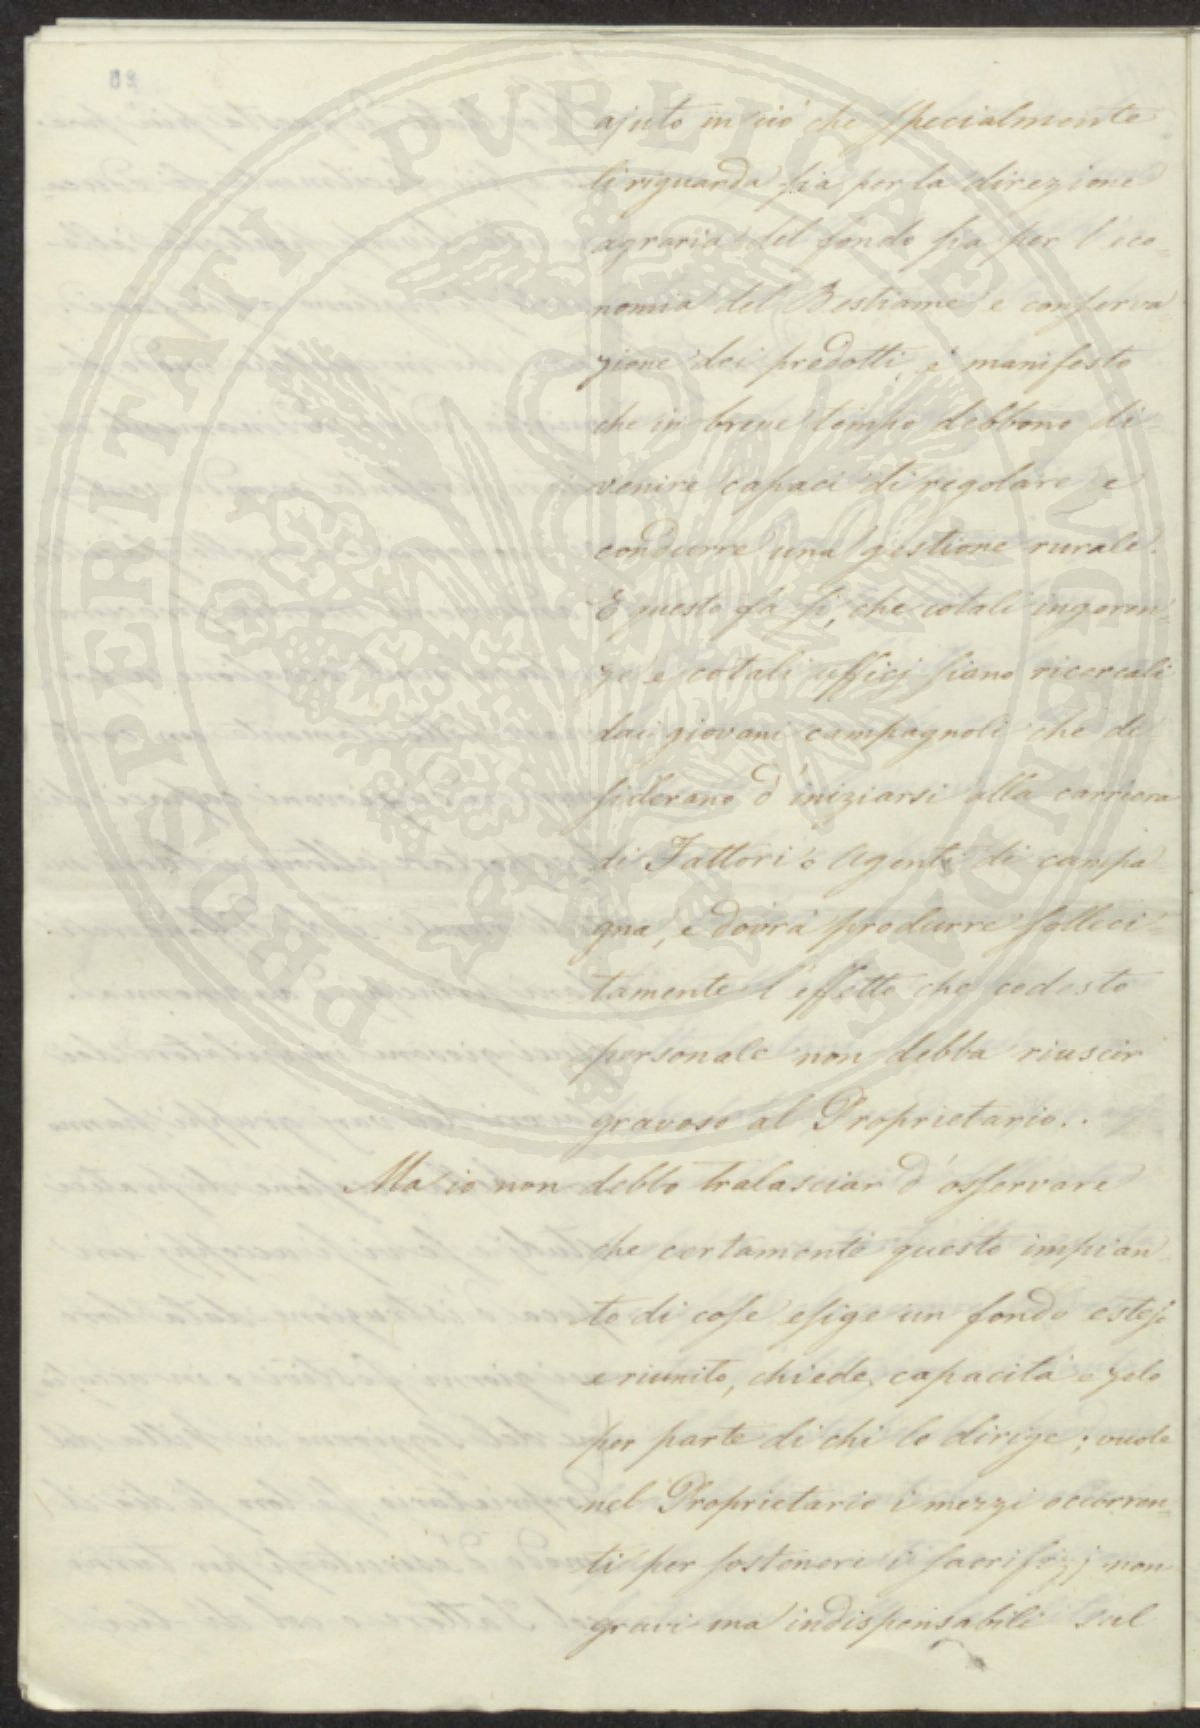 ajuto in ciò che specialmente
li riguarda sia per la direzione
agraria del fondo sia per l'eco=
nomia del Bestiame e conserva=
zione dei prodotti è manifesto
che in breve tempo debbono di=
venire capaci di regolare e
condurre una gestione rurale.
E questo fa sì, che cotali ingeren=
ze e cotali ufficj siano ricercati
dai giovani campagnoli che de=
siderano d'iniziarsi alla carriera
di Fattori o Agenti di campa=
gna, e dovrà produrre solleci=
tamente l'effetto che codesto
personale non debba riuscir
gravoso al Proprietario.
Ma io non debbo tralasciar d'osservare
che certamente questo impian=
to di cose esige un fondo esteso
e riunito, chiede capacità e zelo
per parte di chi lo dirige; vuole
nel Proprietario i mezzi occorren=
ti per sostenere i sacrifizj non
gravi ma indispensabili sul
PROSPERITATI PUBLICAE AUGENDAE